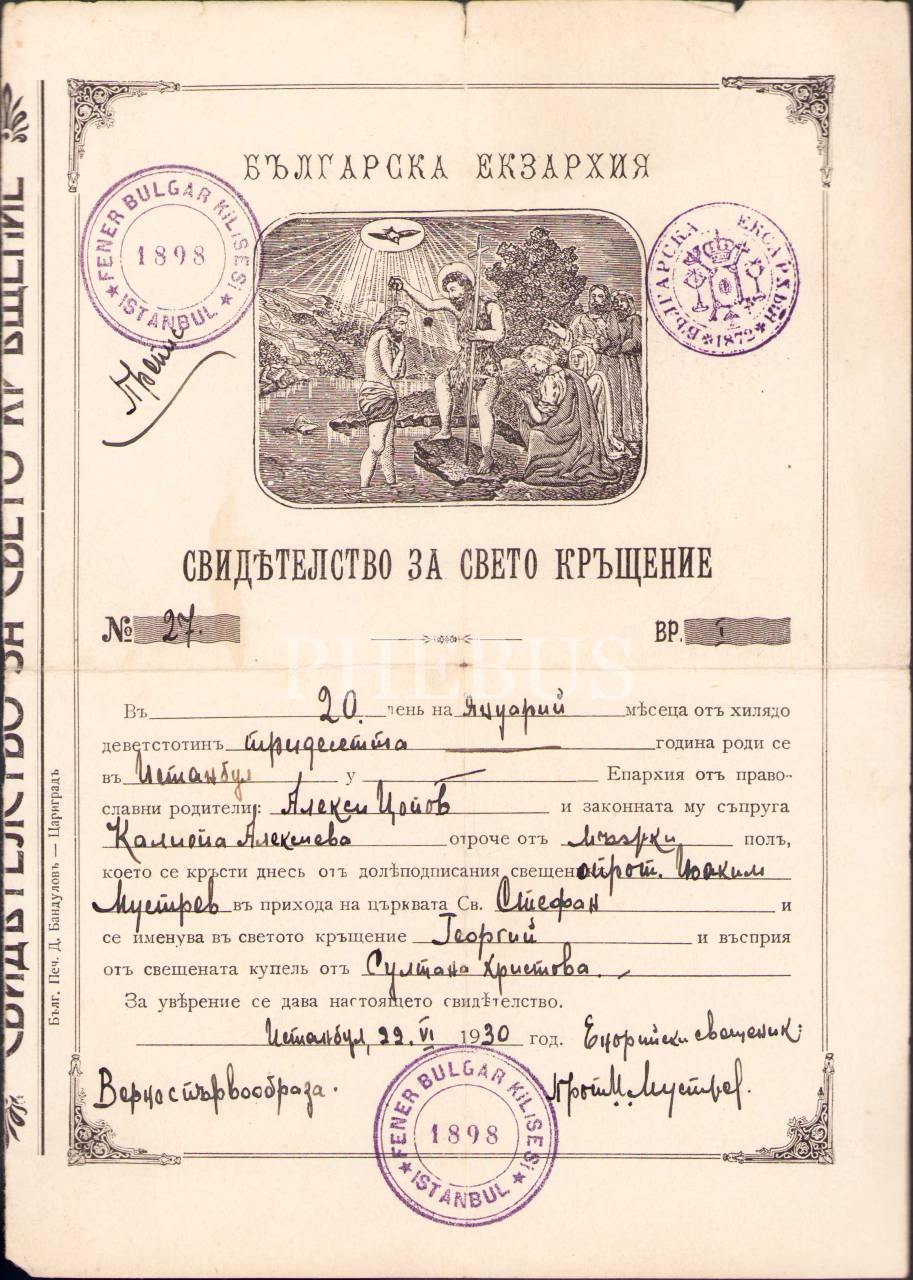 БЪЛГАРСКА ЕКЗАРХИЯ
FENER BULGAR KILISESI
1898
★ ISTANBUL ★
БЪЛГАРСКА ЕКСАРХЫЯ
*1872*
Препис
СВИДѢТЕЛСТВО ЗА СВЕТО КРЪЩЕНИЕ
№ 27. ВР. I
PHEBUS
Въ 20. день на Януарий мѣсеца отъ хилядо
деветстотинъ тридесетта година роди се
въ Истанбул у Епархия отъ право-
славни родители: Алекси Цопов и законната му съпруга
Калиопа Алексиева отроче отъ мъжки полъ,
което се кръсти днесь отъ долѣподписания свещен прот. Иоаким
Мустрев въ прихода на църквата Св. Стефан и
се именува въ светото кръщение Георгий и въсприя
отъ свещената купель отъ Султана Христова.
За увѣрение се дава настоящето свидѣтелство.
Истанбул, 22. VI 1930 год. Енорийски свещеник:
Верно с първообраза. прот. И. Мустрев.
FENER BULGAR KILISESI
1898
★ ISTANBUL ★
СВИДѢТЕЛСТВО ЗА СВЕТО КРЪЩЕНИЕ
Бълг. Печ. Д. Бандуловъ — Цариградъ